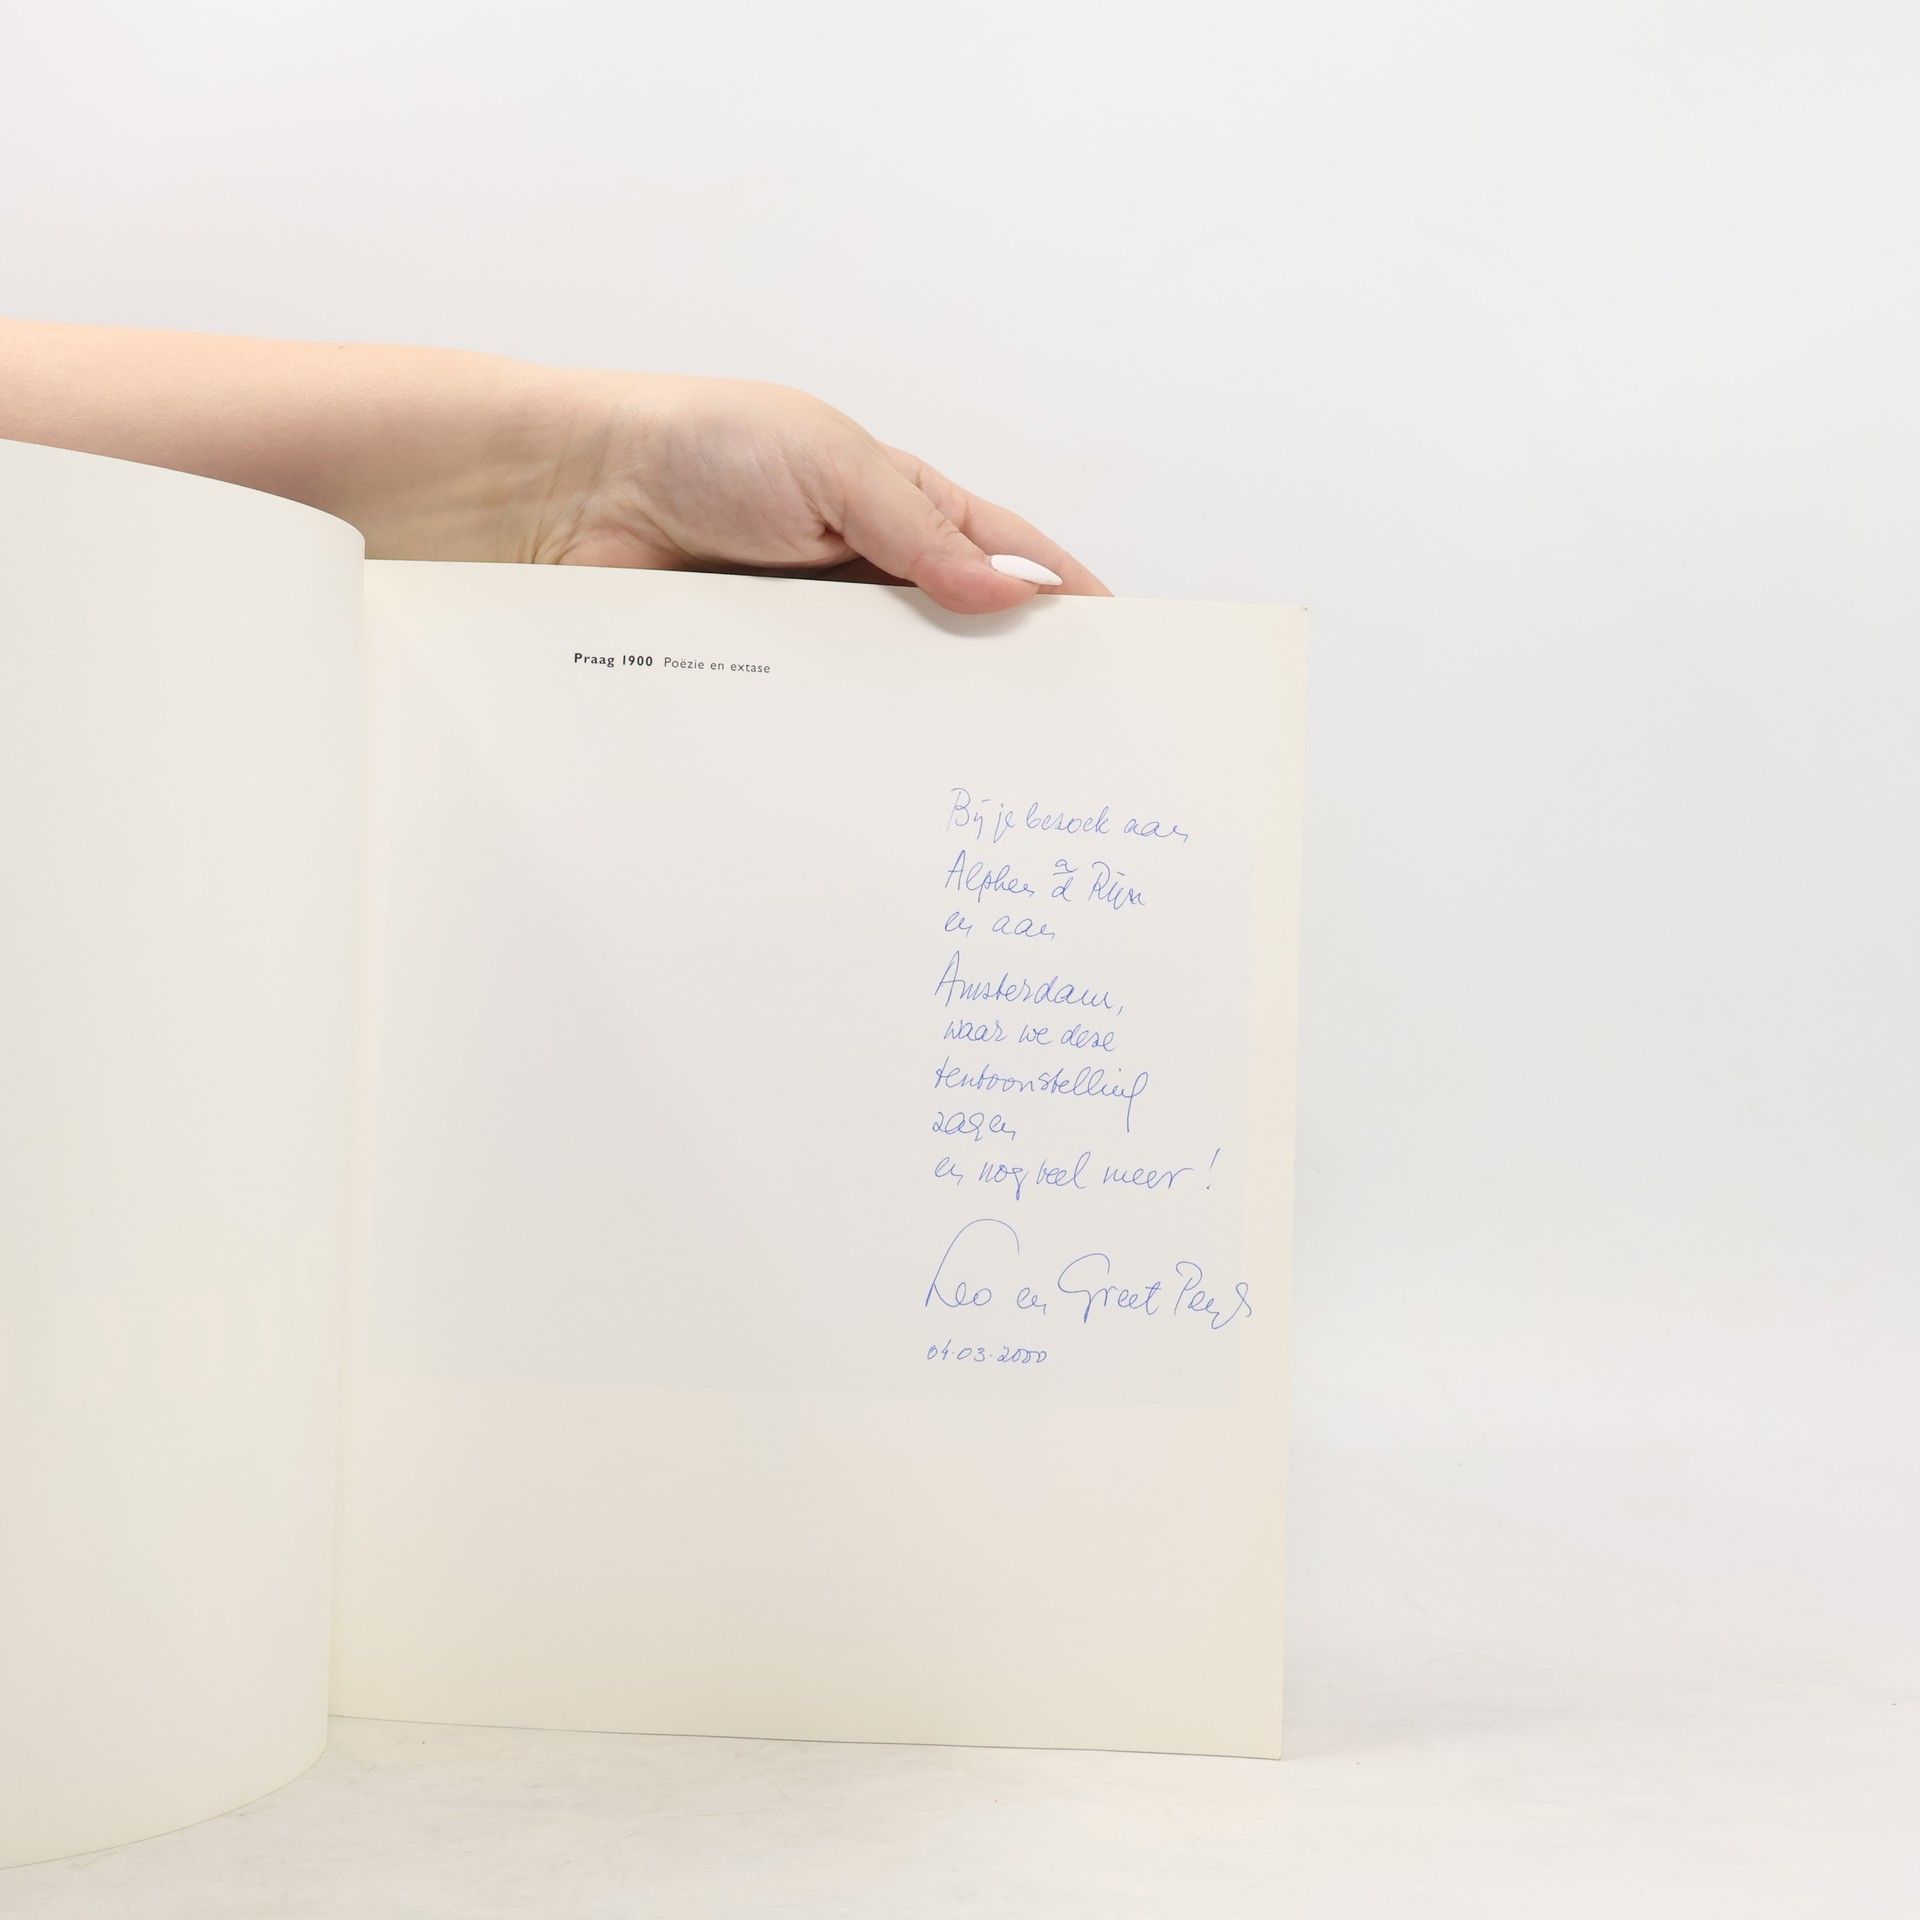 Praag 1900 Poëzie en extase
Bij je bezoek aan
Alphen a/d Rijn
en aan
Amsterdam,
waar we deze
tentoonstelling
zagen
en nog veel meer!
Leo en Greet
04.03.2000